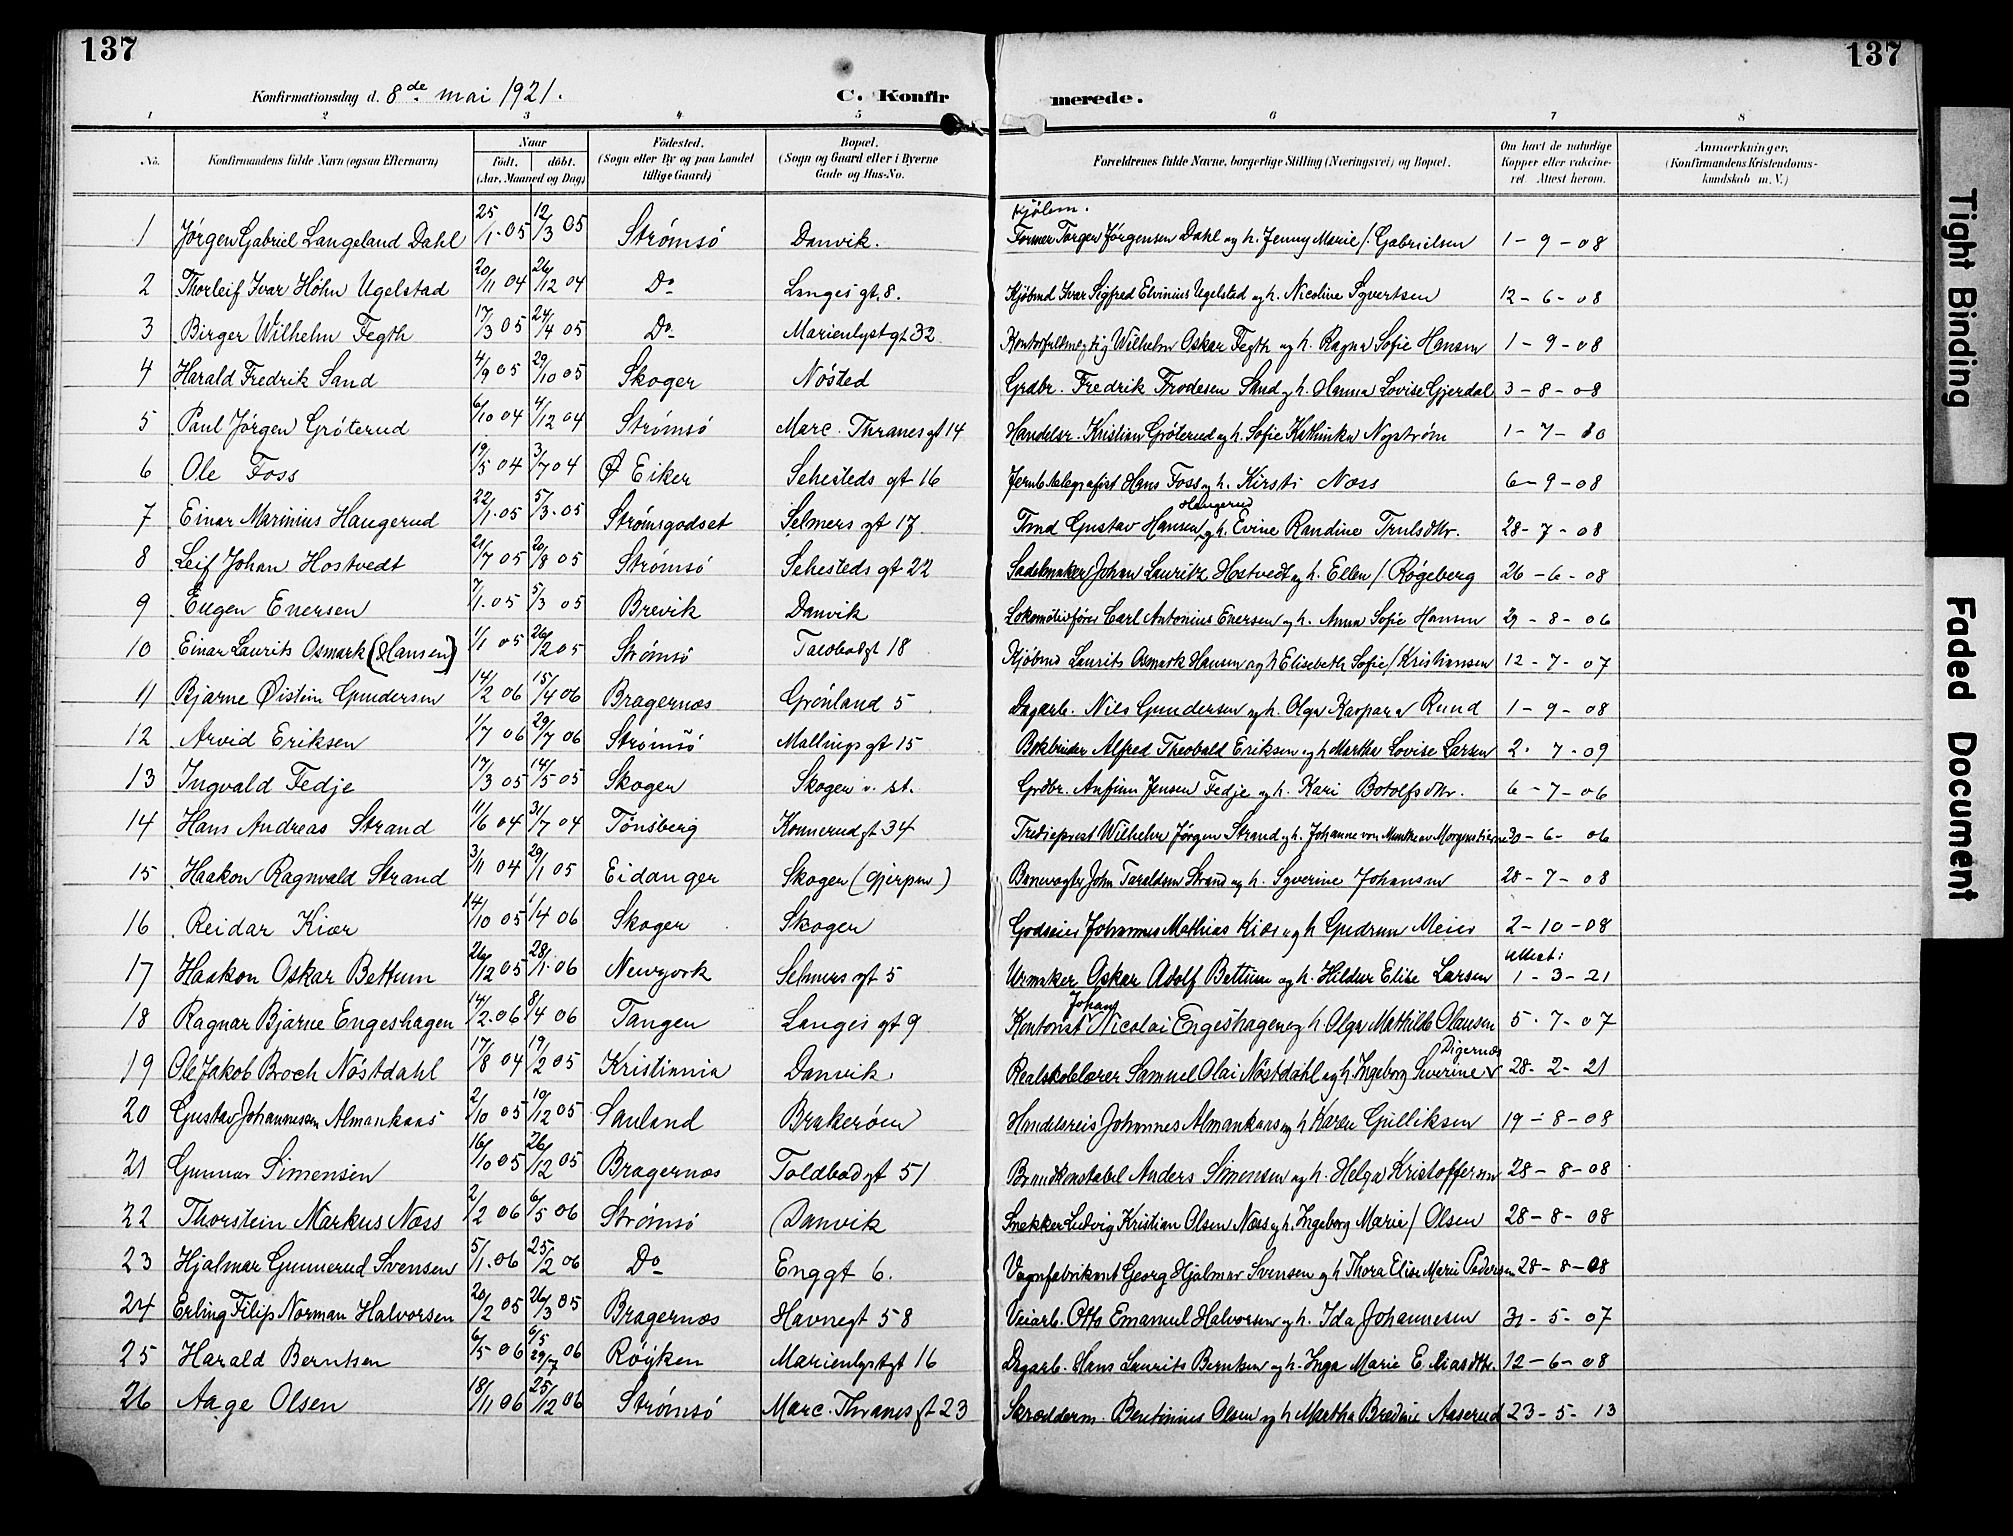 137
137
Konfirmationsdag d. 8de mai 1921.
C. Konfir merede.
1 2 3 4 5 6 7 8
No. Konfirmandens fulde Navn (ogsaa Efternavn) Naar født, døbt. (Aar, Maaned og Dag) Fødested. (Sogn eller By og paa Landet tillige Gaard) Bopæl. (Sogn og Gaard eller i Byerne Gade og Hus-No. Forældrenes fulde Navne, borgerlige Stilling (Næringsvei) og Bopæl. Om havt de naturlige Kopper eller vakcineret. Attest herom. Anmærkninger. (Konfirmandens Kristendomskundskab m. V.)
1 Jørgen Gabriel Langeland Dahl 25/1.05 12/3 05 Strømsø Danvik. Former Torger Jørgensen Dahl og h. Jenny Marie f. Gabrielsen 1-9-08
2 Thorleif Ivar Høhn Ugelstad 20/11 04 26/12 04 Do Langes gt. 8. Kjøbmd Ivar Sigfred Elvinius Ugelstad og h. Nicoline Syvertsen 12-6-08
3 Birger Wilhelm Fegth 17/3 05 24/4 05 Do Marienlystgt 32 Kontorfuldmegtig Wilhelm Oskar Fegth og h. Ragna Sofie Hansen 1-9-08
4 Harald Fredrik Sand 4/9 05 29/10 05 Skoger Nøsted Grdbr. Fredrik Frodesen Sand og h. Hanna Lovise Gjerdal 3-8-08
5 Paul Jørgen Grøterud 6/10 04 4/12 04 Strømsø Marc. Thranes gt 14 Handelsr. Kristian Grøterud og h. Sofie Kathinka Nystrøm 1-7-10
6 Ole Foss 19/5 04 3/7 04 Ø Eiker Sehesteds gt 16 Jernb.telegrafist Hans Foss og h. Kirsti Næss 6-9-08
7 Einar Marinius Haugerud 22/1.05 5/3.05 Strømsgodset Selmers gt 17. Tmd Gustav Hansen Haugerud og h. Evine Randine Trulsdtr. 28-7-08
8 Leif Johan Hostvedt 21/7 05 20/8 05 Strømsø Sehesteds gt 22 Sadelmaker Johan Lauritz Hostvedt og h. Ellen f. Røgeberg 26-6-08
9 Eugen Enersen 7/1.05 5/3 05 Brevik Danvik Lokomotivfører Carl Antonius Enersen og h. Anna Sofie Hansen 29-8-06
10 Einar Laurits Osmark (Hansen) 1/1 05 26/2 05 Strømsø Toldbodgt 18 Kjøbmd Laurits Osmark Hansen og h Elisebeth Sofie f. Kristiansen 12-7-07
11 Bjarne Øistein Gundersen 14/2 06 15/4 06 Bragernæs Grønland 5 Dagarb. Nils Gundersen og h. Olga Kaspara Rund 1-9-08
12 Arvid Eriksen 1/7 06 29/7 06 Strømsø Mallings gt 15 Bokbinder Alfred Theobald Eriksen og h Martha Lovise Larsen 2. 7-09
13 Ingvald Fedje 17/3 05 14/5 05 Skoger Skoger v. st. Grdbr. Anfinn Jensen Fedje og h. Kari Botolfsdtr. 6-7-06
14 Hans Andreas Strand 11/6 04 31/7 04 Tønsberg Konnerudgt 34 Tredieprest Wilhelm Jørgen Strand og h. Johanne von Munthe av Morgenstierne 30-6-06
15 Haakon Ragnvald Strand 3/11 04 29/1 05 Eidanger Skoger (Gjerpen) Banevogter John Taraldsen Strand og h. Syverine Johansen 28-7-08
16 Reidar Kiær 14/10 05 1/4 06 Skoger Skoger Godseier Johannes Mathias Kiær og h Gudrun Meier 2-10-08
17 Haakon Oskar Bettum 26/12 05 28/1.06 Newyork Selmers gt 5 Urmaker Oskar Adolf Bettum og h. Hildur Elise Larsen Attest: 1-3-21
18 Ragnar Bjarne Engeshagen 14/2.06 8/4 06 Tangen Langes gt 9 Kontorist Johan Nicolai Engeshagen og h. Olga Mathilde Olausen 5.7-07
19 Ole Jakob Broch Nøstdahl 17/8 04 19/2 05 Kristiania Danvik Realskolelærer Samuel Olai Nøstdahl og h. Ingeborg Severine Digernæs 28-2-21
20 Gustav Johannessen Almankaas 2/10 05 10/12 05 Sauland Brakerøen Handelsreis Johannes Almankaas og h Karen Gulliksen 19-8-08
21 Gunnar Simensen 16/10 05 26/12 05 Bragernæs Toldbodgt 51 Brandkonstabel Anders Simensen og h. Helga Kristoffersen 28-8-08
22 Thorstein Markus Næss 2/2 06 6/5 06 Strømsø Danvik Snekker Ludvig Kristian Olsen Næss og h. Ingeborg Marie f. Olsen 28-8-08
23 Hjalmar Gunnerud Svensen 5/1.06 25/2 06 Do Enggt 6. Vognfabrikant Georg Hjalmar Svensen og h Thora Elise Marie Pedersen 28-8-08
24 Erling Filip Norman Halvorsen 20/2 05 26/3 05 Bragernæs Havnegt 58 Veiarb. Otto Emanuel Halvorsen og h. Ida Johannesen 31-5-07
25 Harald Berntsen 6/5 06 6/5 29/7 06 Røyken Marienlystgt 16 Dagarb. Hans Laurits Berntsen og h. Inga Marie E. Eliasdtr. 12-6-08
26 Aage Olsen 18/11 06 25/12 06 Strømsø Marc. Thranes gt 23 Skrædderm. Bentinius Olsen og h Martha Bredine Aaserud 23-5-13
Tight Binding
Faded Document